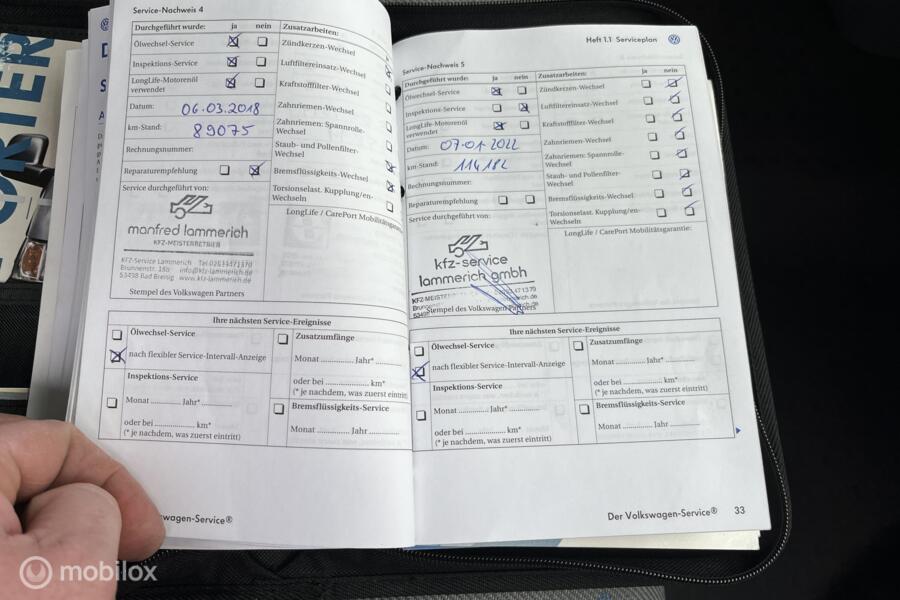 Service-Nachweis 4
Durchgeführt wurde: ja nein Zusatzarbeiten:
Ölwechsel-Service
Inspektions-Service
LongLife-Motorenöl
verwendet
Datum: 06.03.2018
km-Stand: 89075
Rechnungsnummer:
Reparaturempfehlung
Zündkerzen-Wechsel
Luftfiltereinsatz-Wechsel
Kraftstofffilter-Wechsel
Zahnriemen-Wechsel
Zahnriemen: Spannrolle-
Wechsel
Staub- und Pollenfilter-
Wechsel
Bremsflüssigkeits-Wechsel
Torsionselast. Kupplung/en-
Wechseln
Service durchgeführt von:
manfred lammerich
KFZ-MEISTERBETRIEB
KFZ-Service Lammerich
Brunnenstr. 18b info@kfz-lammerich.de
53498 Bad Breisig www.kfz-lammerich.de
Stempel des Volkswagen Partners
LongLife / CarePort
Ihre nächsten Service-Ereignisse
Ölwechsel-Service
nach flexibler Service-Intervall-Anzeige
Inspektions-Service
Monat ............ Jahr* ............
oder bei .................... km*
(* je nachdem, was zuerst eintritt)
Zusatzumfänge
Monat ............ Jahr* ............
oder bei .................... km*
(* je nachdem, was zuerst eintritt)
Bremsflüssigkeits-Service
Monat ............ Jahr ............
wagen-Service®
Heft 1.1 Serviceplan
Service-Nachweis 5
Durchgeführt wurde: ja nein Zusatzarbeiten: ja nein
Ölwechsel-Service
Inspektions-Service
LongLife-Motorenöl
verwendet
Datum: 07-01 2022
km-Stand: 114182
Rechnungsnummer:
Reparaturempfehlung
Zündkerzen-Wechsel
Luftfiltereinsatz-Wechsel
Kraftstofffilter-Wechsel
Zahnriemen-Wechsel
Zahnriemen: Spannrolle-
Wechsel
Staub- und Pollenfilter-
Wechsel
Bremsflüssigkeits-Wechsel
Torsionselast. Kupplung/en-
Wechseln
Service durchgeführt von:
kfz-service
lammerich gmbh
Stempel des Volkswagen Partners
LongLife / CarePort Mobilitätsgarantie:
Ihre nächsten Service-Ereignisse
Ölwechsel-Service
nach flexibler Service-Intervall-Anzeige
Inspektions-Service
Monat ............ Jahr* ............
oder bei .................... km*
(* je nachdem, was zuerst eintritt)
Zusatzumfänge
Monat ............ Jahr* ............
oder bei .................... km*
(* je nachdem, was zuerst eintritt)
Bremsflüssigkeits-Service
Monat ............ Jahr ............
Der Volkswagen-Service® 33
mobilox